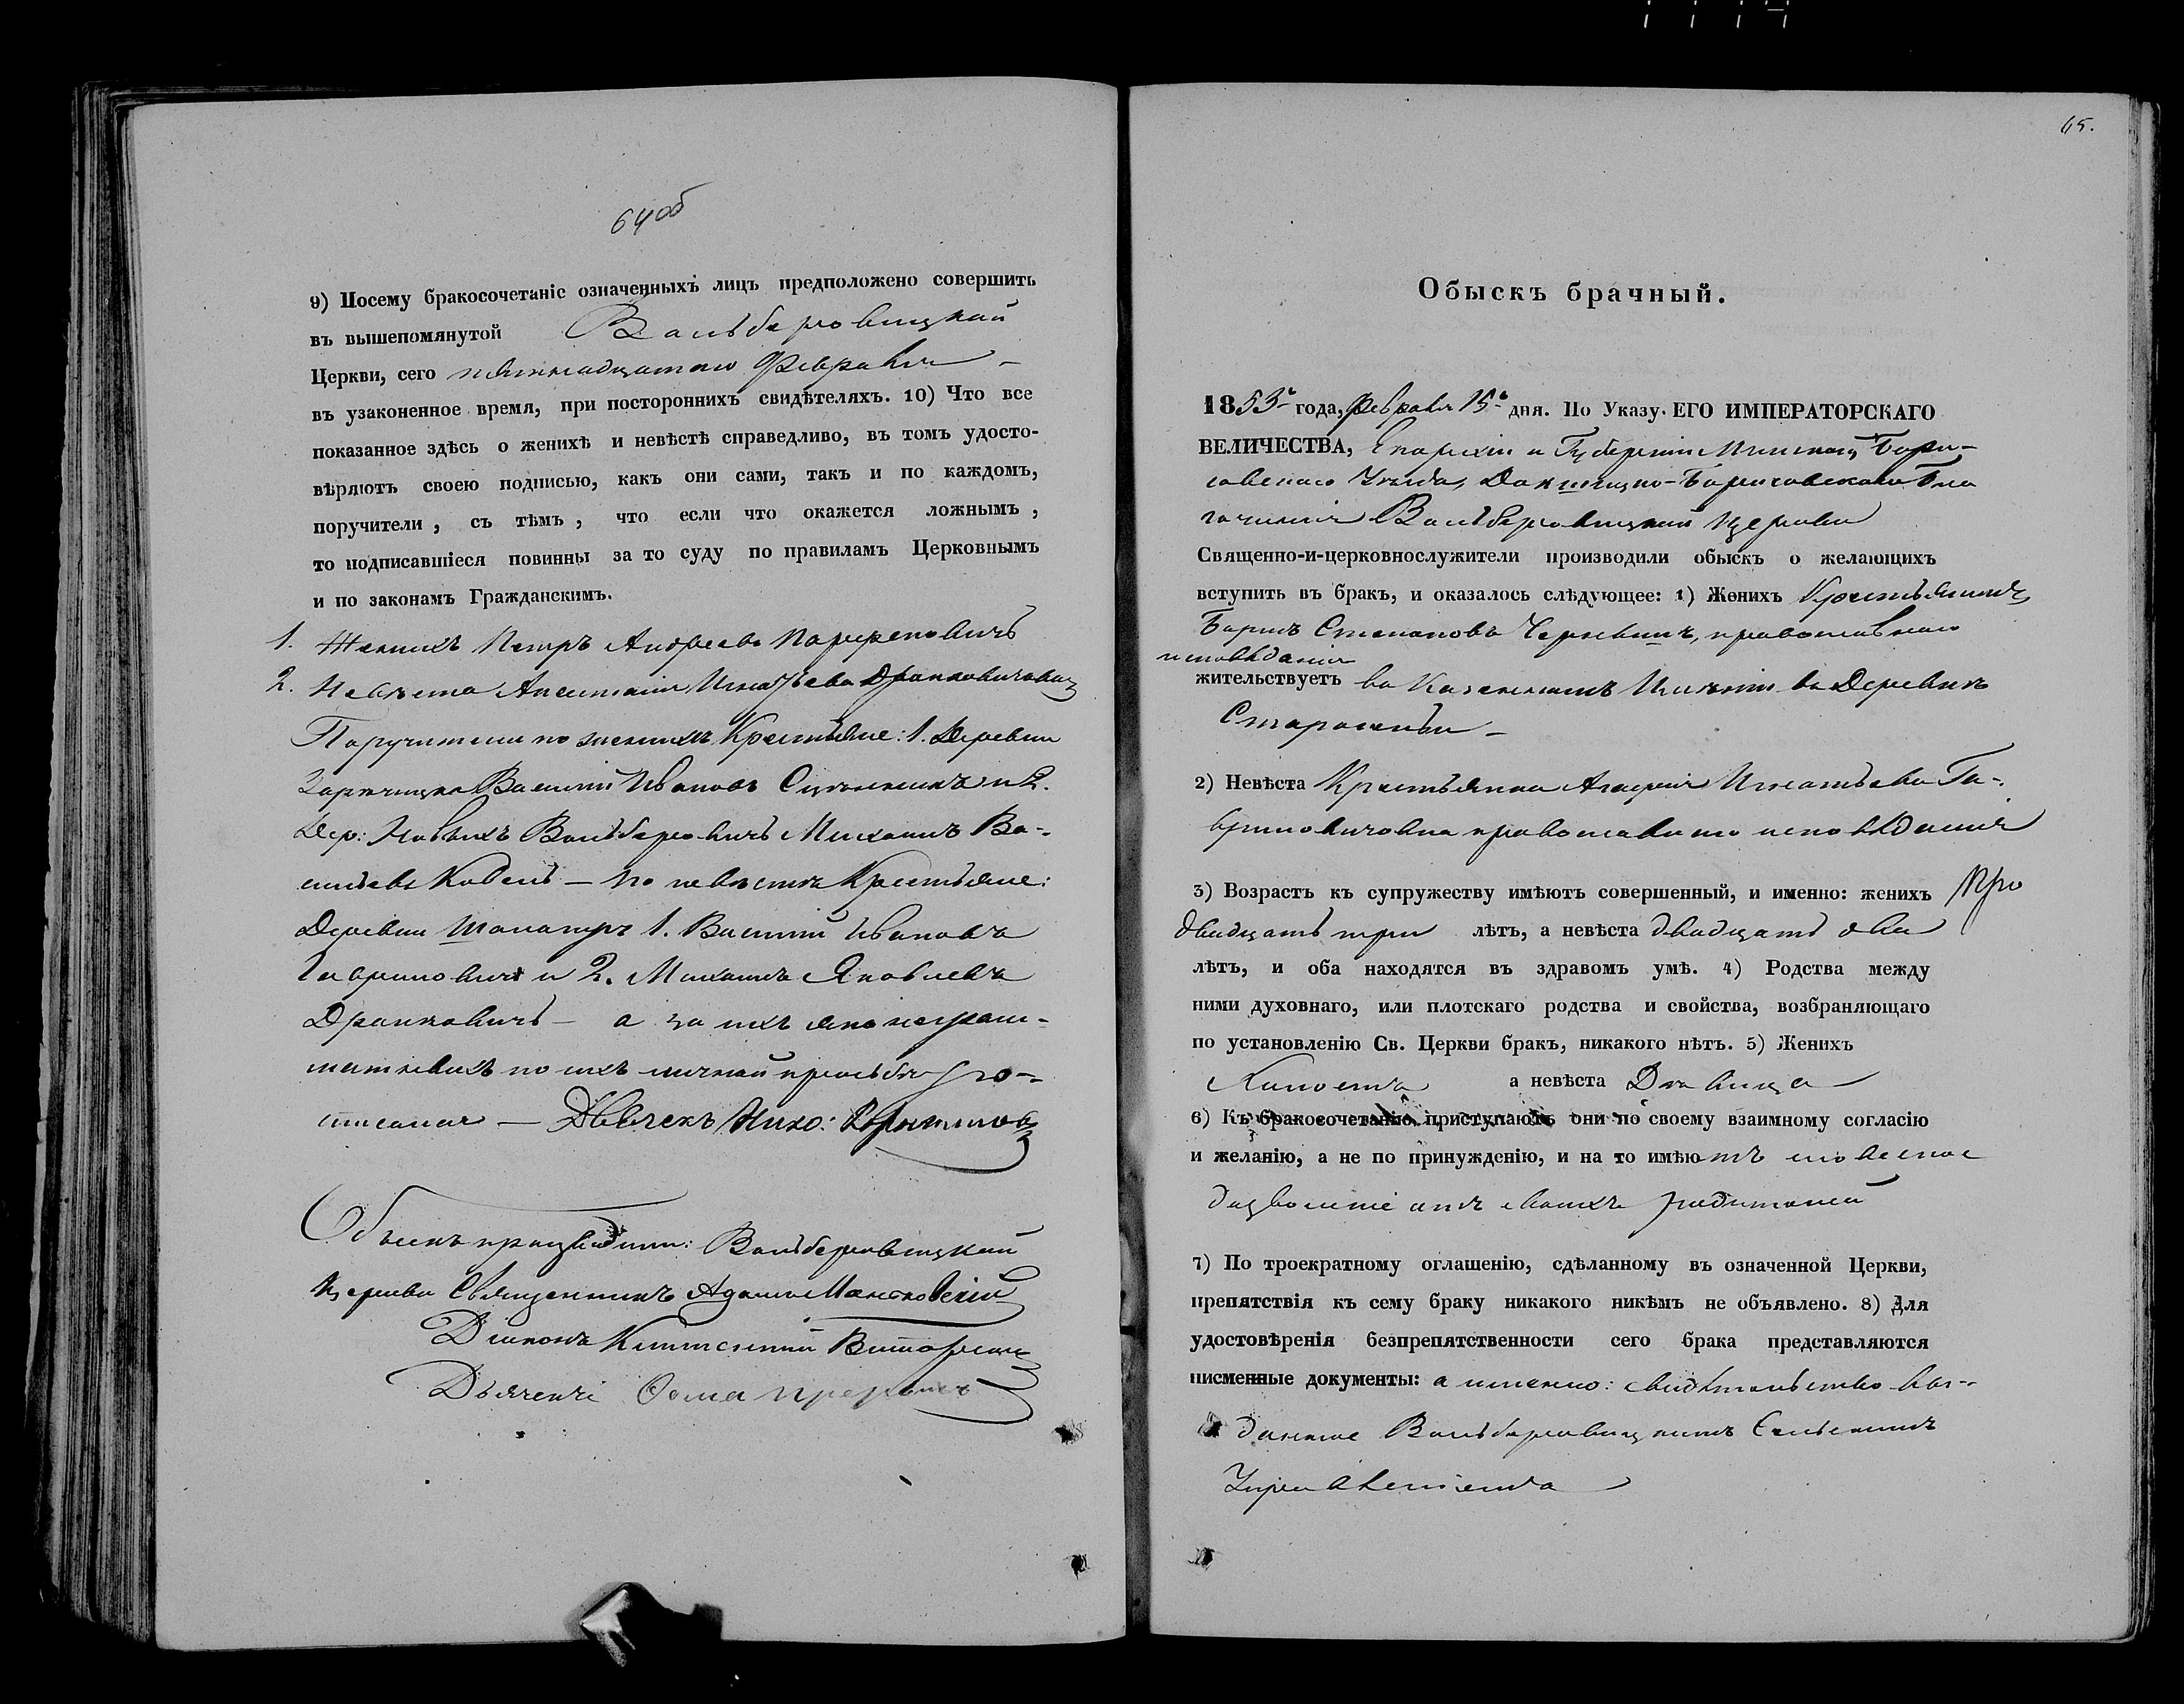 64об
9) Посему бракосочетаніе означенныхъ лицъ предположено совершить
въ вышепомянутой Вольберовицкой
Церкви, сего пятнадцатаго Февраля –
въ узаконенное время, при постороннихъ свидѣтеляхъ. 10) Что все
показанное здѣсь о женихѣ и невѣстѣ справедливо, въ томъ удосто-
вѣряютъ своею подписью, какъ они сами, такъ и по каждомъ,
поручители, съ тѣмъ, что если что окажется ложнымъ,
то подписавшіеся повинны за то суду по правиламъ Церковнымъ
и по законамъ Гражданскимъ.
1. Женихъ Петръ Андреевъ Парфеновичъ
2. Невѣста Анастасія Игнатьева
Поручители по женихѣ Крестьяне: 1. Деревни
Василій Ивановъ и 2.
Дер: Новыхъ Вольберовичь Михаилъ Ва-
сильевъ – по невѣстѣ Крестьяне:
Деревни 1. Василій Ивановъ
Гавриловичъ и 2. Михаилъ Яковлевъ
– а за ихъ яко неграм-
матныхъ по ихъ личной прозьбѣ ро-
списался – Дьячекъ Нико:
Обыскъ производили: Вольберовицкой
Церкви Священникъ Адамъ
Діаконъ
Ѳома
65.
Обыскъ брачный.
1853 года, Февраля 15 дня. По Указу ЕГО ИМПЕРАТОРСКАГО
ВЕЛИЧЕСТВА, Епархіи и Губерніи Минской, Бори-
совскаго Уѣзда, Благо
чинія Вольберовицкой Церкви
Священно-и-церковнослужители производили обыскъ о желающихъ
вступить въ бракъ, и оказалось слѣдующее: 1) Женихъ Крестьянинъ
Борисъ Степановъ православнаго
исповѣданія
жительствуетъ въ Казенномъ Имѣніи въ Деревнѣ
2) Невѣста Крестьянка Агафія Игнатьева Га-
вриловичовна православнаго исповѣданія
3) Возрастъ къ супружеству имѣютъ совершенный, и именно: женихъ
двадцать три лѣтъ, а невѣста двадцать два
лѣтъ, и оба находятся въ здравомъ умѣ. 4) Родства между
ними духовнаго, или плотскаго родства и свойства, возбраняющаго
по установленію Св. Церкви бракъ, никакого нѣтъ. 5) Женихъ
Холостъ а невѣста Дѣвица
6) Къ бракосочетанію приступаютъ они по своему взаимному согласію
и желанію, а не по принужденію, и на то имѣютъ словесное
дозволеніе отъ своихъ родителей
7) По троекратному оглашенію, сдѣланному въ означенной Церкви,
препятствія къ сему браку никакого никѣмъ не объявлено. 8) Для
удостовѣренія безпрепятственности сего брака представляются
писменные документы: а именно: свидѣтельство вы-
данное Вольберовицкимъ Сельскимъ
Управленіемъ